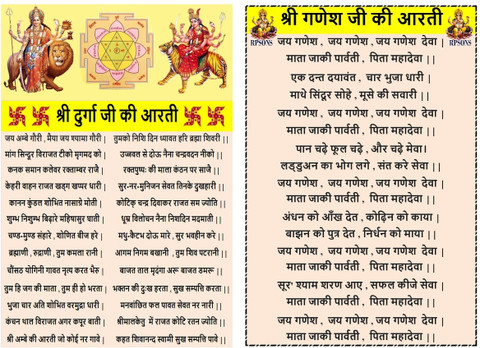 श्री दुर्गा जी की आरती
जय अम्बे गौरी , मैया जय श्यामा गौरी |
तुमको निशि दिन ध्यावत हरि ब्रह्मा शिवरी ||
मांग सिन्दूर विराजत टीको मृगमद को |
उज्जवल से दोऊ नैना चन्द्रवदन नीको ||
कनक समान कलेवर रक्ताम्बर राजे |
रक्तपुष्प की माला कंठन पर साजै ||
केहरी वाहन राजत खड्ग खप्पर धारी |
सुर-नर-मुनिजन सेवत तिनके दुखहारी ||
कानन कुंडल शोभित नासाग्रे मोती |
कोटिक चन्द्र दिवाकर राजत सम ज्योति ||
शुम्भ निशुम्भ बिढ़ारे महिषासुर घाती |
धूम्र विलोचन नैना निशदिन मदमाती ||
चण्ड-मुण्ड संहारे , शोणित बीज हरे |
मधु-कैटभ दोऊ मारे , सुर भयहीन करे ||
ब्रह्माणी , रुद्राणी , तुम कमला रानी |
आगम निगम बखानी , तुम शिव पटरानी ||
चौंसठ योगिनी गावत नृत्य करत भैरु |
बाजत ताल मृदंगा अरू बाजत डमरू ||
तुम हि जग की माता , तुम ही हो भरता |
भक्तन की दुःख हरता , सुख सम्पत्ति करता ||
भुजा चार अति शोभित वरमुद्रा धारी |
मनवांछित फल पावत सेवत नर नारी ||
कंचन थाल विराजत अगर कपूर बाती |
श्रीमालकेतु में राजत कोटि रतन ज्योति ||
श्री अम्बे की आरती जो कोई नर गावे |
कहत शिवानन्द स्वामी सुख सम्पत्ति पावे ||
श्री गणेश जी की आरती
RPSONS
RPSONS
जय गणेश , जय गणेश , जय गणेश देवा |
माता जाकी पार्वती , पिता महादेवा ||
एक दन्त दयावंत , चार भुजा धारी |
माथे सिंदूर सोहे , मूसे की सवारी ||
जय गणेश , जय गणेश , जय गणेश देवा |
माता जाकी पार्वती , पिता महादेवा ||
पान चढ़े फूल चढ़े , और चढ़े मेवा |
लड्डुअन का भोग लगे , संत करे सेवा ||
जय गणेश , जय गणेश , जय गणेश देवा |
माता जाकी पार्वती , पिता महादेवा ||
अंधन को आँख देत , कोढ़िन को काया |
बाझन को पुत्र देत , निर्धन को माया ||
जय गणेश , जय गणेश , जय गणेश देवा |
माता जाकी पार्वती , पिता महादेवा ||
सूर' श्याम शरण आए , सफल कीजे सेवा |
माता जाकी पार्वती , पिता महादेवा ||
जय गणेश , जय गणेश , जय गणेश देवा |
माता जाकी पार्वती , पिता महादेवा ||